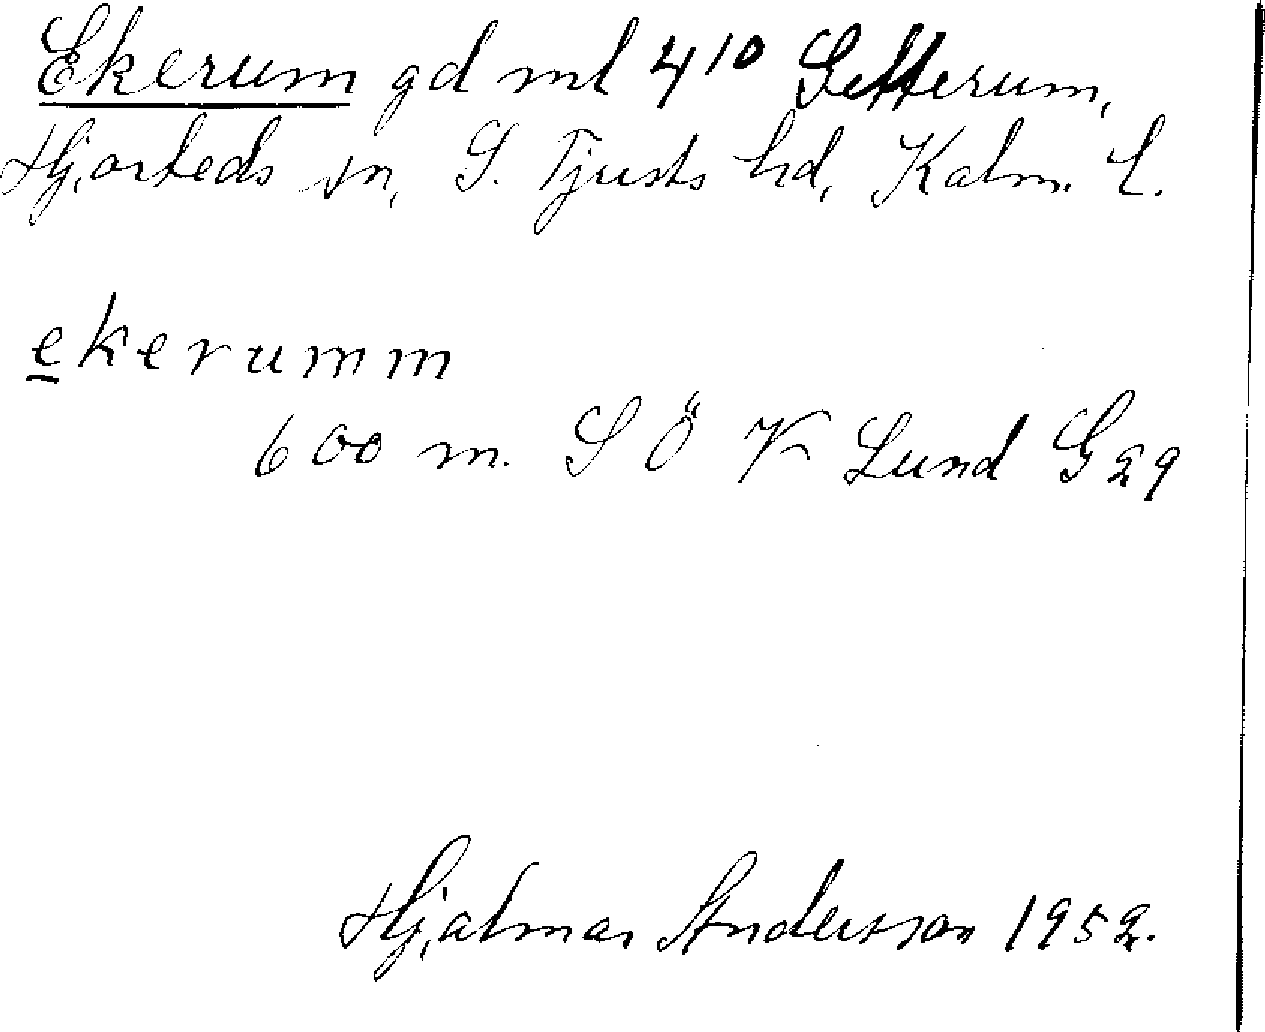 Ekerum gd ml 4¹⁰ Setterum,
Hjorteds sn, S. Tjusts hd, Kalm. l.
ekerumm
600 m. S Ö K Lund G 29
Hjalmar Andersson 1952.